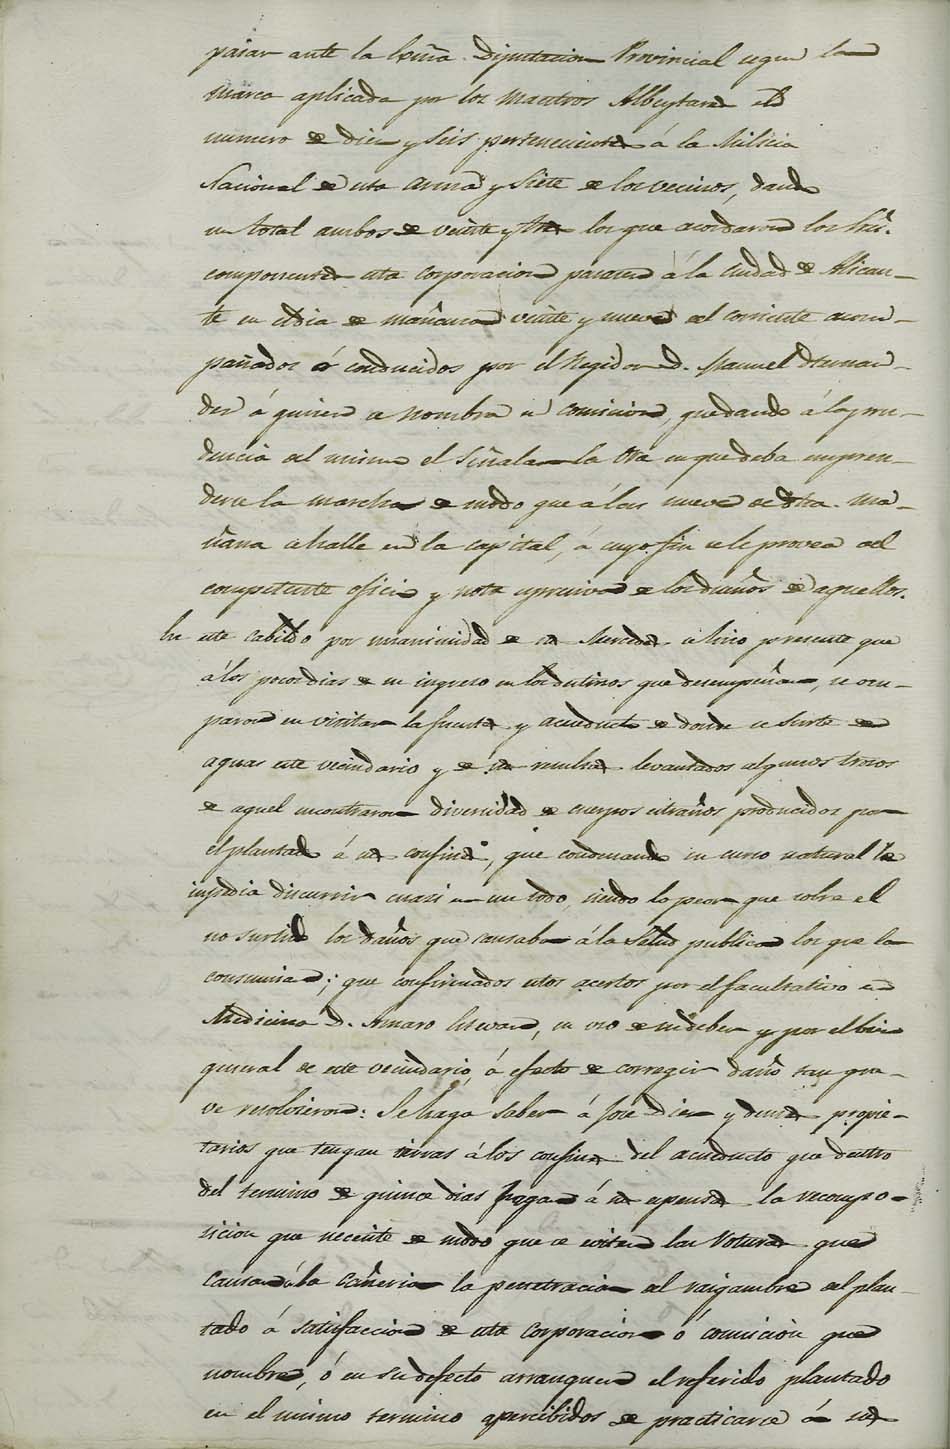 pasar ante la Exma. Diputacion Provincial segun la
marca aplicada por los Maestros Albeytares el
numero de diez y seis pertenecientes á la Milicia
Nacional de esta arma y siete de los vecinos, dando
un total ambos de veinte y tres los que acordaron los Sres.
componentes esta corporacion pasasen á la Ciudad de Alican-
te en el dia de mañana veinte y nueve del corriente acom-
pañados ó conducidos por el Regidor D. Manuel Hernan-
dez á quien se nombra en comision, quedando á la pru-
dencia del mismo el señalar la Ora en que deba empren-
derse la marcha de modo que á las nueve de dha. ma-
ñana se halle en la capital, á cuyo fin se le provea del
competente oficio y nota espresiva de los dueños de aquellos.
En este cabildo por unanimidad de sus Mercedes se hizo presente que
á los pocos dias de su ingreso en los destinos que desempeñan, se ocu-
paron en visitar la fuente y acueducto de donde se surte de
aguas este vecindario y de sus resultas levantados algunos trosos
de aquel encontraron diversidad de cuerpos estraños producidos por
el plantado á sus confines, que condenando su curso natural le
impedia discurrir cuasi en un todo, siendo lo peor que sobre el
no surtido los daños que causaba á la Salud publica los que la
consumian; que confirmados estos asertos por el facultativo en
Medicina D. Amaro Estevan, en uso de su deber y por el bien
general de este vecindario, á efecto de corregir daño tan gra-
ve resolvieron: Se haga saber á José Diez y demas propie-
tarios que tengan tierras á los confines del acueducto que dentro
del termino de quince dias hagan á sus espensas la recompo-
sicion que necesite de modo que se eviten las Roturas que
causan á la Cañeria la penetracion del raigambre del plan-
tado á satisfaccion de esta Corporacion ó comision que
nombre, ó en su defecto arranquen el referido plantado
en el mismo termino apercibidos de practicarse á sus